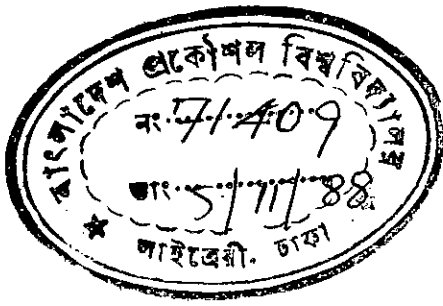 বাংলাদেশ প্রকৌশল বিশ্ববিদ্যালয়
নং. 71409
তাং 5/11/88
★ লাইব্রেরী. ঢাকা